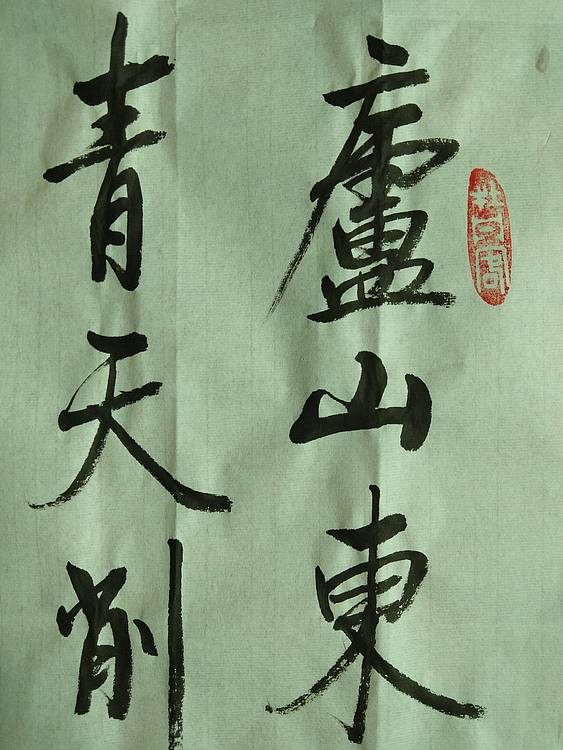 廬山東
青天削